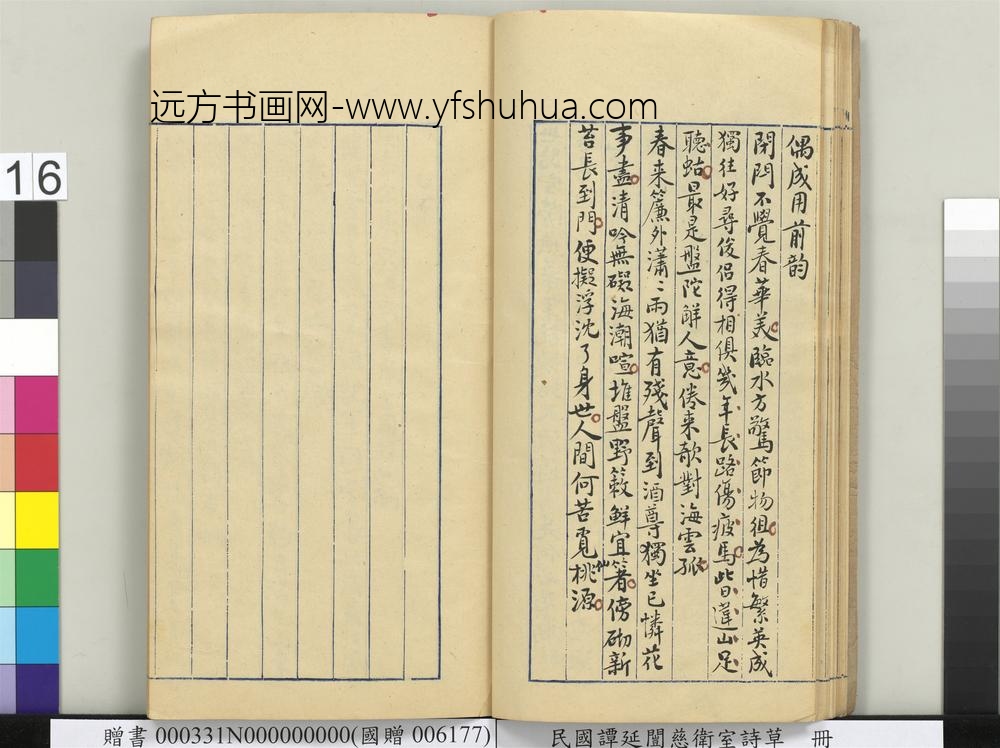 远方书画网-www.yfshuhua.com
偶成用前韵
閉門不覺春華美臨水方驚節物徂為惜繁英成
獨往好尋俊侶得相俱幾年長路傷疲馬此日違山足
聽蛄最是盤陀解人意倦来欹對海雲孤
春来簾外瀟〻雨猶有殘聲到酒尊獨坐已憐花
事盡清吟無礙海潮喧堆盤野簌鮮宜箸傍砌新
苔長到門便擬浮沈了身世人間何苦覓桃源
仙
16
贈書 000331N000000000(國贈 006177)
民國譚延闓慈衛室詩草 冊